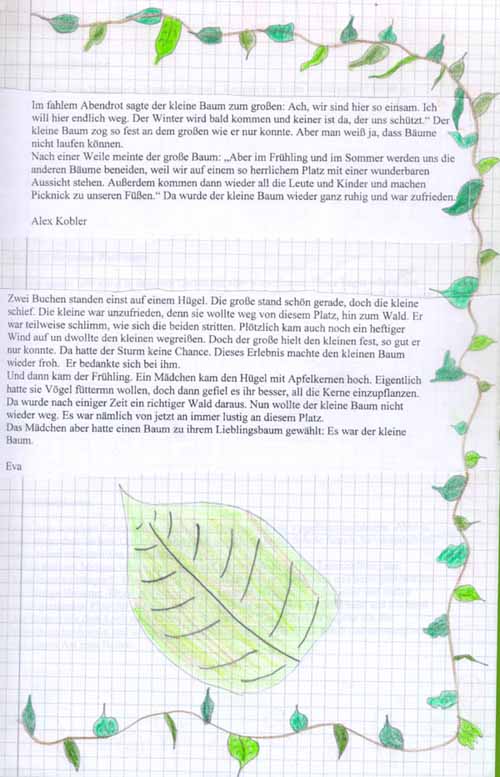 Im fahlem Abendrot sagte der kleine Baum zum großen: Ach, wir sind hier so einsam. Ich
will hier endlich weg. Der Winter wird bald kommen und keiner ist da, der uns schützt.“ Der
kleine Baum zog so fest an dem großen wie er nur konnte. Aber man weiß ja, dass Bäume
nicht laufen können.
Nach einer Weile meinte der große Baum: „Aber im Frühling und im Sommer werden uns die
anderen Bäume beneiden, weil wir auf einem so herrlichem Platz mit einer wunderbaren
Aussicht stehen. Außerdem kommen dann wieder all die Leute und Kinder und machen
Picknick zu unseren Füßen.“ Da wurde der kleine Baum wieder ganz ruhig und war zufrieden.
Alex Kobler
Zwei Buchen standen einst auf einem Hügel. Die große stand schön gerade, doch die kleine
schief. Die kleine war unzufrieden, denn sie wollte weg von diesem Platz, hin zum Wald. Er
war teilweise schlimm, wie sich die beiden stritten. Plötzlich kam auch noch ein heftiger
Wind auf un dwollte den kleinen wegreißen. Doch der große hielt den kleinen fest, so gut er
nur konnte. Da hatte der Sturm keine Chance. Dieses Erlebnis machte den kleinen Baum
wieder froh.  Er bedankte sich bei ihm.
Und dann kam der Frühling. Ein Mädchen kam den Hügel mit Apfelkernen hoch. Eigentlich
hatte sie Vögel füttermn wollen, doch dann gefiel es ihr besser, all die Kerne einzupflanzen.
Da wurde nach einiger Zeit ein richtiger Wald daraus. Nun wollte der kleine Baum nicht
wieder weg. Es war nämlich von jetzt an immer lustig an diesem Platz.
Das Mädchen aber hatte einen Baum zu ihrem Lieblingsbaum gewählt: Es war der kleine
Baum.
Eva